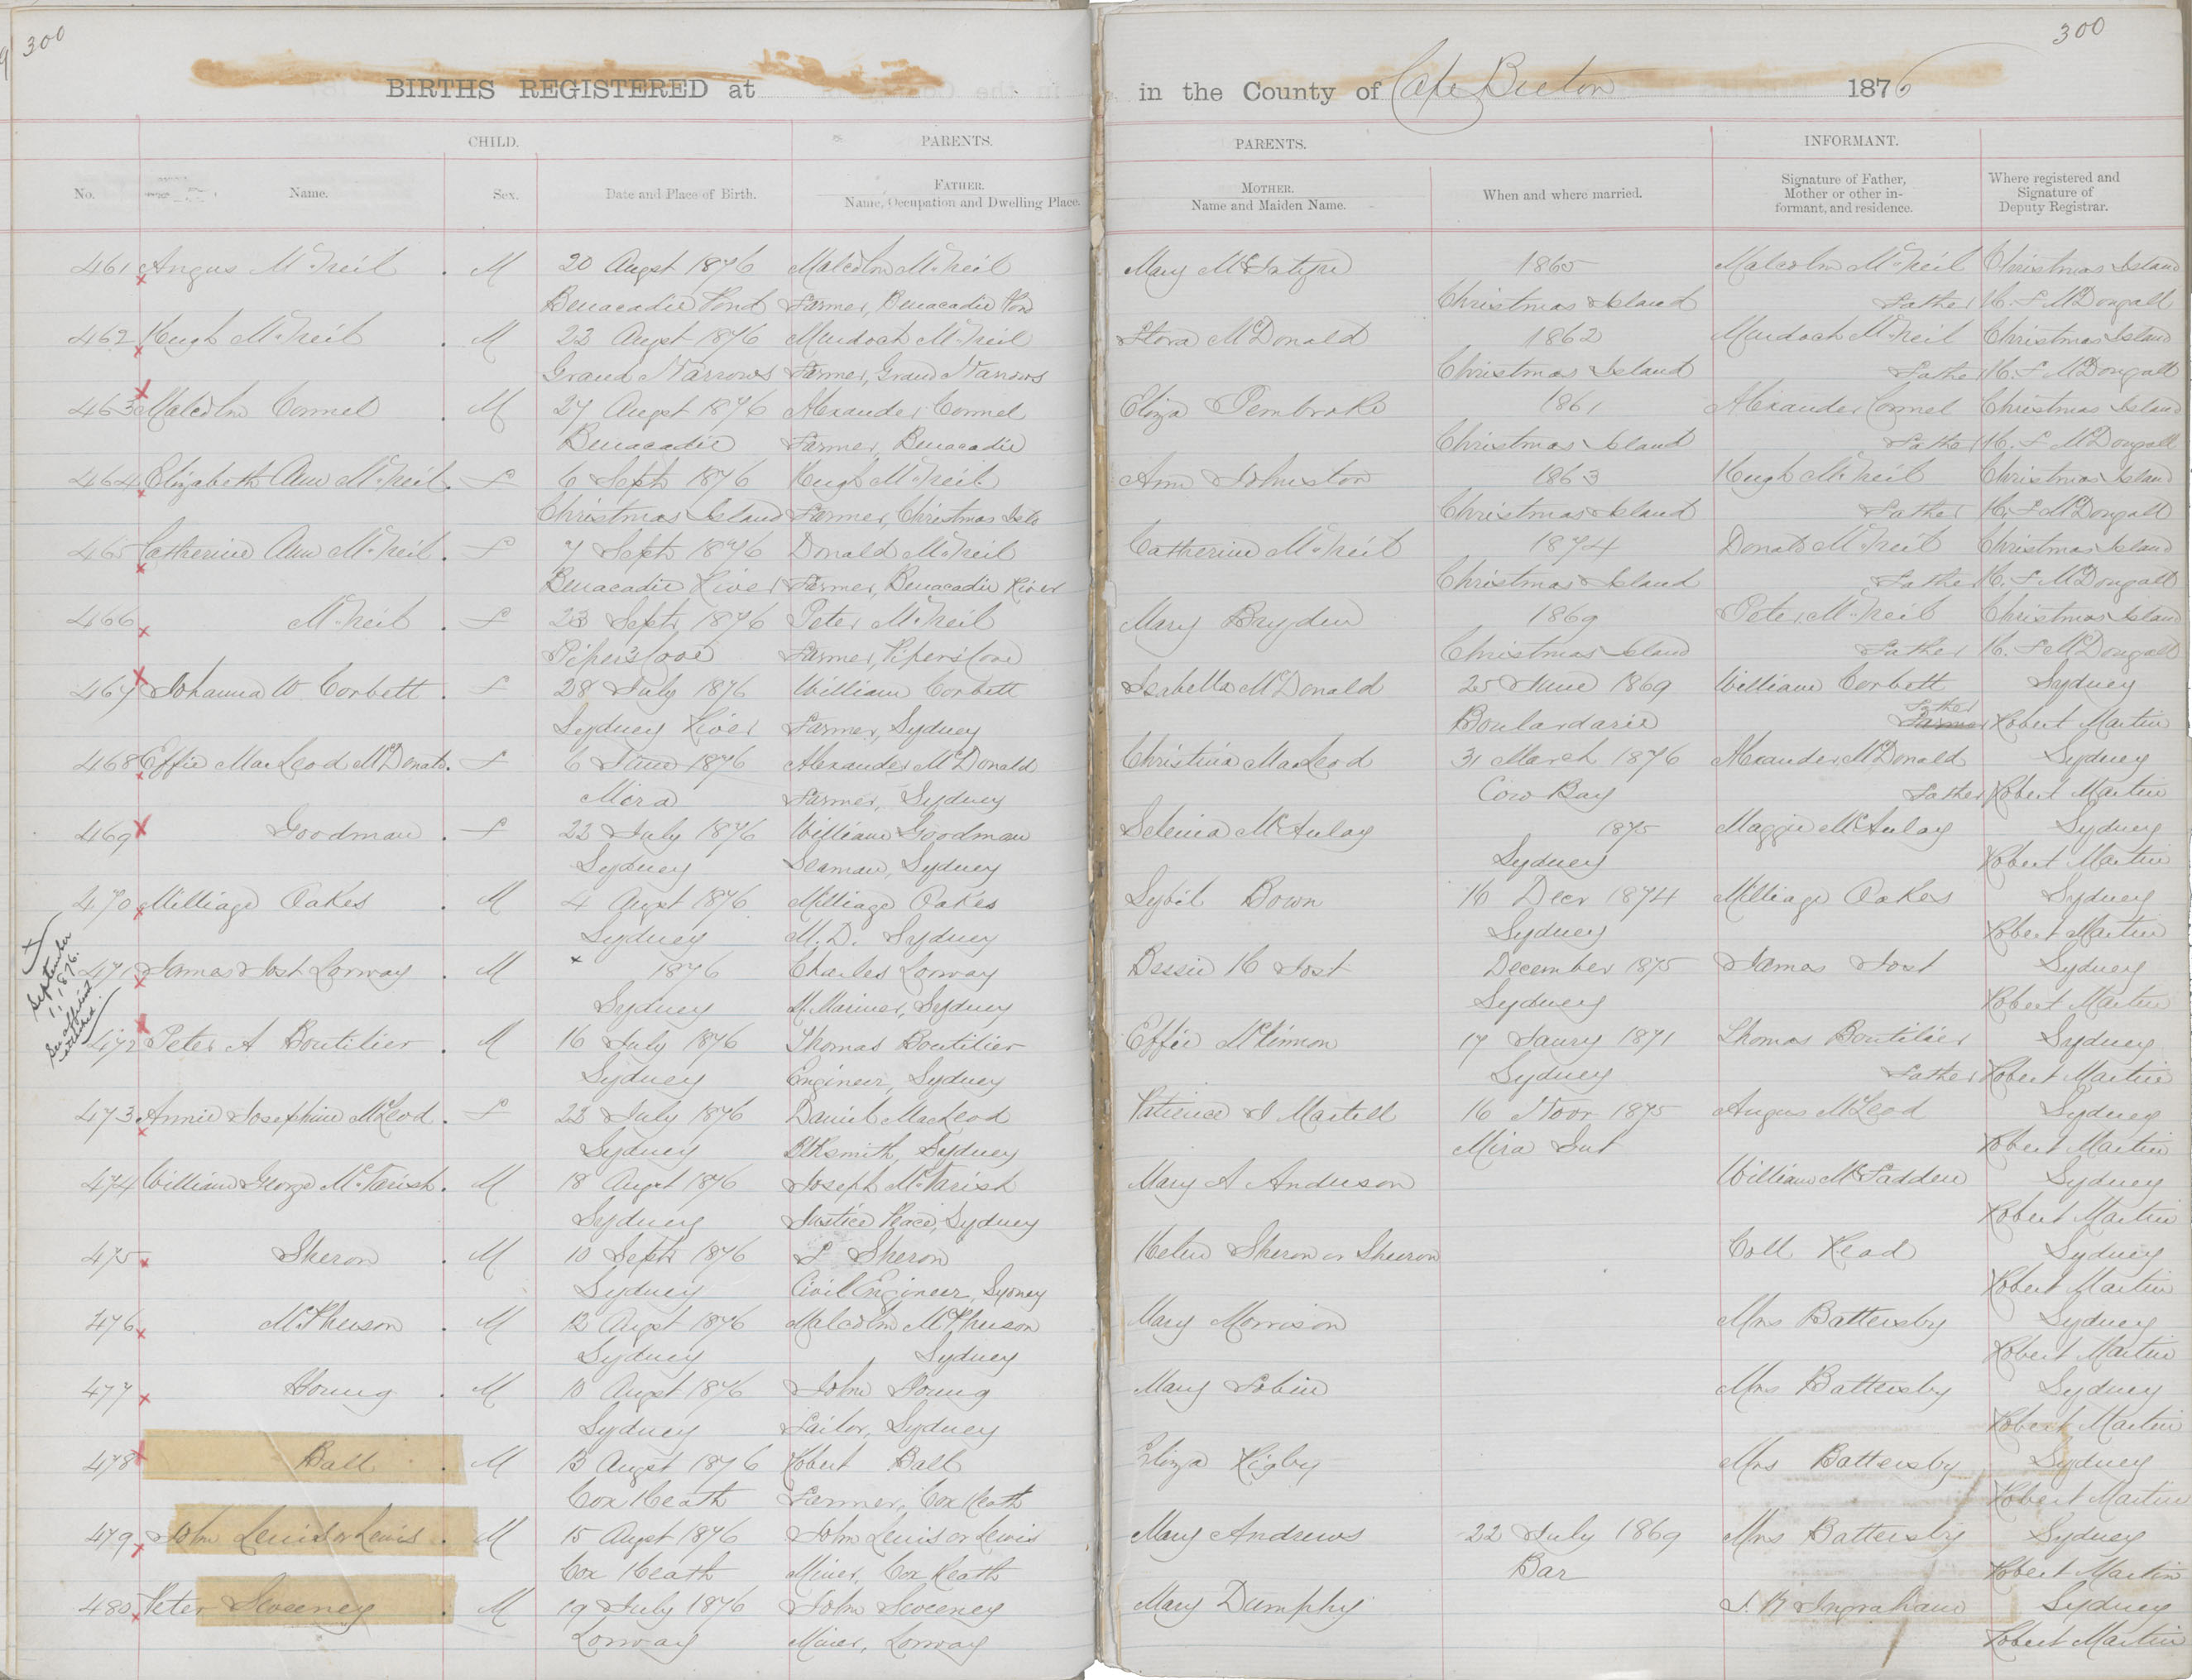 300
300
BIRTHS REGISTERED at in the County of Cape Breton 1876
CHILD. PARENTS. PARENTS. INFORMANT.
No. Name. Sex. Date and Place of Birth. FATHER. Name, Occupation and Dwelling Place. MOTHER. Name and Maiden Name. When and where married. Signature of Father, Mother or other informant, and residence. Where registered and Signature of Deputy Registrar.
461 Angus McNeil . M 20 Augst 1876 Malcolm McNeil Mary McIntyre 1865 Malcolm McNeil Christmas Island
Benacadie Pond Farmer, Benacadie Pond Christmas Island Father H. F. McDougall
462 Hugh McNeil . M 23 Augst 1876 Murdoch McNeil Flora McDonald 1862 Murdoch McNeil Christmas Island
Grand Narrows Farmer, Grand Narrows Christmas Island Father H. F McDougall
463 Malcolm Connel . M 27 Augst 1876 Alexander Connel Eliza Pembroke 1861 Alexander Connel Christmas Island
Benacadie Farmer, Benacadie Christmas Island Father H. F McDougall
464 Elizabeth Ann McNeil . F 6 Sept 1876 Hugh McNeil Ann Johnston 1863 Hugh McNeil Christmas Island
Christmas Island Farmer, Christmas Isld Christmas Island Father H. F McDougall
465 Catherine Ann McNeil . F 7 Sept 1876 Donald McNeil Catherine McNeil 1874 Donald McNeil Christmas Island
Benacadie River Farmer, Benacadie River Christmas Island Father H. F McDougall
466 McNeil . F 23 Sept 1876 Peter McNeil Mary Bryden 1869 Peter McNeil Christmas Island
Pipers Cove Farmer, Pipers Cove Christmas Island Father H. F McDougall
467 Johanna W Corbett . F 28 July 1876 William Corbett Isabella McDonald 25 June 1869 William Corbett Sydney
Sydney River Farmer, Sydney Boulardarie Father Farmer Robert Martin
468 Effie MacLeod McDonald . F 6 June 1876 Alexander McDonald Christina MacLeod 31 March 1876 Alexander McDonald Sydney
Mira Farmer, Sydney Cow Bay Father Robert Martin
469 Goodman . F 22 July 1876 William Goodman Selenia McAulay 1875 Maggie McAulay Sydney
Sydney Seaman, Sydney Sydney Robert Martin
470 Milliage Oakes . M 4 Augst 1876 Milliage Oakes Sybil Bown 16 Decr 1874 Milliage Oakes Sydney
Sydney M. D. Sydney Sydney Robert Martin
x September 11, 1876. See affidavit attached.
471 James Jost Lorway . M x 1876 Charles Lorway Bessie H Jost December 1875 James Jost Sydney
Sydney M. Mariner, Sydney Sydney Robert Martin
472 Peter A Boutilier . M 16 July 1876 Thomas Boutilier Effie McKinnon 17 Janry 1871 Thomas Boutilier Sydney
Sydney Engineer, Sydney Sydney Father Robert Martin
473 Annie Josephine McLeod . F 23 July 1876 Daniel MacLeod Patience I Martell 16 Novr 1875 Angus McLeod Sydney
Sydney Blksmith, Sydney Mira Gut Robert Martin
474 William George McTarish . M 18 Augst 1876 Joseph McTarish Mary A Anderson William McFadden Sydney
Sydney Justice Peace, Sydney Robert Martin
475 Sheron . M 10 Sept 1876 L Sheron Helen Sheron or Sheeron Coll Read Sydney
Sydney Civil Engineer, Sydney Robert Martin
476 McPherson . M 12 Augst 1876 Malcolm McPherson Mary Morrison Mrs Battersby Sydney
Sydney Sydney Robert Martin
477 Young . M 10 Augst 1876 John Young Mary Tobin Mrs Battersby Sydney
Sydney Tailor, Sydney Robert Martin
478 Ball . M 13 Augst 1876 Robert Ball Eliza Rigby Mrs Battersby Sydney
Cox Heath Farmer, Cox Heath Robert Martin
479 John Lenis or Lewis . M 15 Augst 1876 John Lenis or Lewis Mary Andrews 22 July 1869 Mrs Battersby Sydney
Cox Heath Miner, Cox Heath Bar Robert Martin
480 Peter Sweeney . M 19 July 1876 John Sweeney Mary Dumphy J. B Ingraham Sydney
Lorway Miner, Lorway Robert Martin